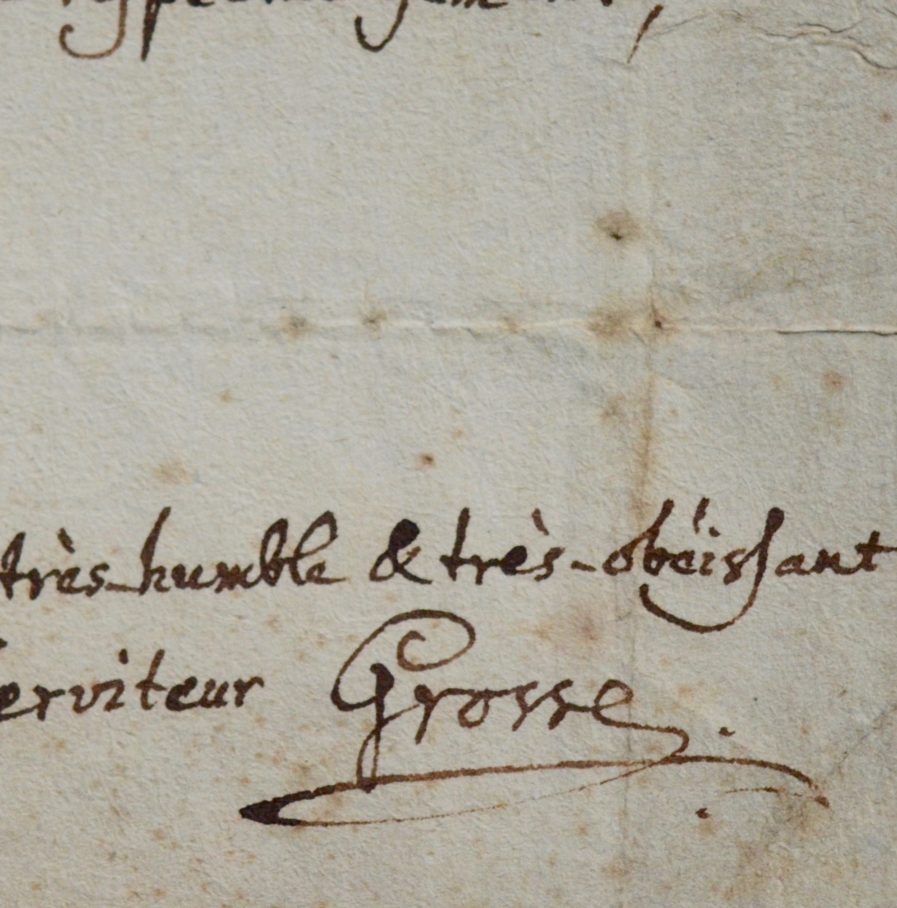 très-humble & très-obëissant
serviteur Grosse